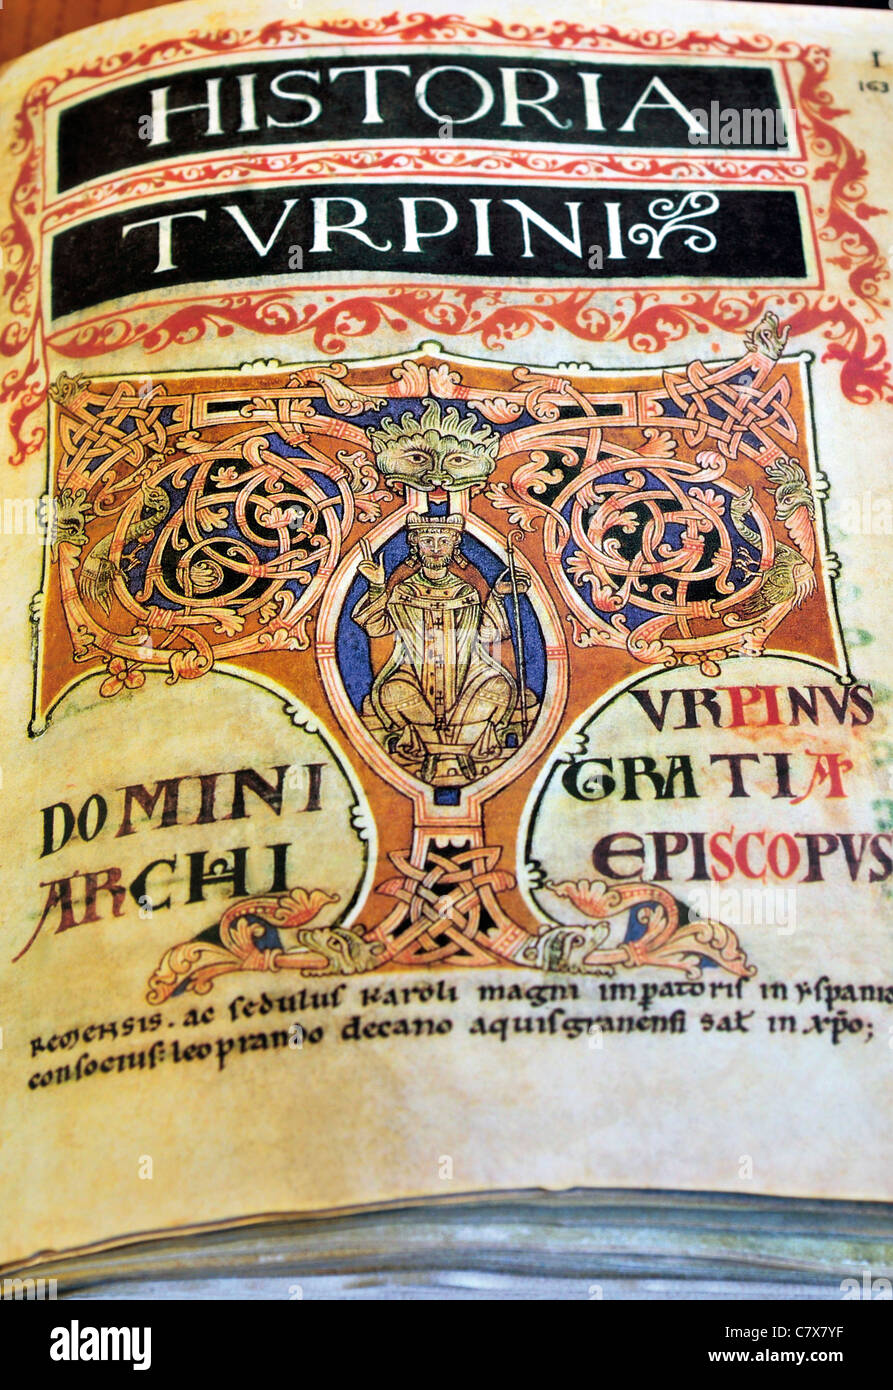 HISTORIA
TVRPINI
I
163
T
VRPINVS
DOMINI GRATIA
ARCHI EPISCOPVS
REMENSIS. ac sedulus karoli magni impatoris in yspania
consocius: leoprando decano aquisgranensi sal in xpo;
alamy
Image ID: C7X7YF
www.alamy.com